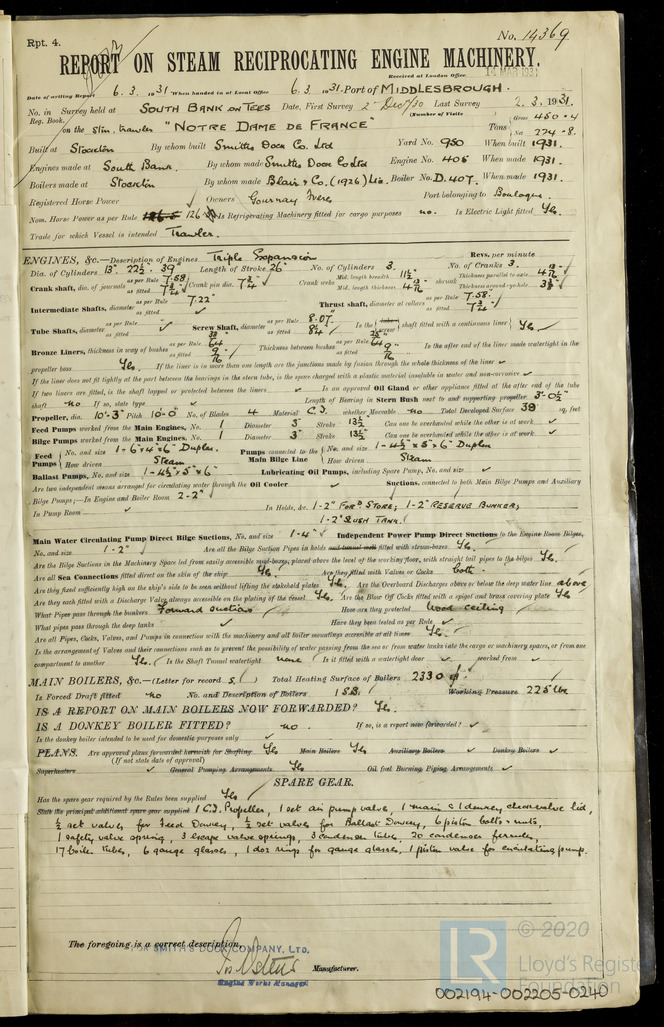 Rpt. 4.
No. 14369
REPORT ON STEAM RECIPROCATING ENGINE MACHINERY.
Received at London Office 14 MAR 1931
Date of writing Report 6. 3. 1931 When handed in at Local Office 6. 3. 1931 Port of MIDDLESBROUGH.
No. in Survey held at SOUTH BANK ON TEES Date, First Survey 2 Dec/30 Last Survey 2. 3. 1931.
Reg. Book. (Number of Visits
on the Stm. trawler "NOTRE DAME DE FRANCE" Tons Gross 450.4 Net 274.8
Built at Stockton By whom built Smiths Dock Co. Ltd Yard No. 950 When built 1931.
Engines made at South Bank. By whom made Smiths Dock Co Ltd Engine No. 406 When made 1931.
Boilers made at Stockton By whom made Blair & Co. (1926) Ltd. Boiler No. D. 407. When made 1931.
Registered Horse Power Owners Gournay Freres Port belonging to Boulogne.
Nom. Horse Power as per Rule 126 Is Refrigerating Machinery fitted for cargo purposes no. Is Electric Light fitted Yes.
Trade for which Vessel is intended Trawler.
ENGINES, &c.—Description of Engines Triple Expansion Revs. per minute
Dia. of Cylinders 13" 22½" 39" Length of Stroke 26" No. of Cylinders 3. No. of Cranks 3.
Crank shaft, dia. of journals as per Rule 7.58 as fitted 7¾" Crank pin dia. 7¾" Crank webs Mid. length breadth 11½" Mid. length thickness 4 13/16 shrunk Thickness parallel to axis 4 13/16 Thickness around eye-hole
Intermediate Shafts, diameter as per Rule 7.22 as fitted Thrust shaft, diameter at collars as per Rule 7.58. as fitted 7¾"
Tube Shafts, diameter as per Rule as fitted Screw Shaft, diameter as per Rule 8.07 as fitted 8¼" Is the screw shaft fitted with a continuous liner Yes
Bronze Liners, thickness in way of bushes as per Rule as fitted 9/16 Thickness between bushes as per Rule as fitted 9/16 Is the after end of the liner made watertight in the
propeller boss Yes. If the liner is in more than one length are the junctions made by fusion through the whole thickness of the liner
If the liner does not fit tightly at the part between the bearings in the stern tube, is the space charged with a plastic material insoluble in water and non-corrosive
If two liners are fitted, is the shaft lapped or protected between the liners Is an approved Oil Gland or other appliance fitted at the after end of the tube
shaft no If so, state type Length of Bearing in Stern Bush next to and supporting propeller 3'-0½"
Propeller, dia. 10'-3" Pitch 10'-0" No. of Blades 4 Material C.I. whether Moveable no Total Developed Surface 38 sq. feet
Feed Pumps worked from the Main Engines, No. 1 Diameter 3" Stroke 13½" Can one be overhauled while the other is at work
Bilge Pumps worked from the Main Engines, No. 1 Diameter 3" Stroke 13½" Can one be overhauled while the other is at work
Feed Pumps No. and size 1-6"x4"x6" Duplex. Pumps connected to the Main Bilge Line No. and size 1-4½"x5"x6" Duplex
How driven Steam How driven Steam
Ballast Pumps, No. and size 1-4½"x5"x6" Lubricating Oil Pumps, including Spare Pump, No. and size
Are two independent means arranged for circulating water through the Oil Cooler Suctions, connected to both Main Bilge Pumps and Auxiliary
Bilge Pumps;—In Engine and Boiler Room 2-2"
In Pump Room In Holds, &c. 1-2" FORD STORE; 1-2" RESERVE BUNKER;
1-2" SLUSH TANK.
Main Water Circulating Pump Direct Bilge Suctions, No. and size 1-4" Independent Power Pump Direct Suctions to the Engine Room Bilges,
No. and size 1-2" Are all the Bilge Suction Pipes in holds and tunnel well fitted with strum-boxes Yes.
Are the Bilge Suctions in the Machinery Space led from easily accessible mud-boxes, placed above the level of the working floor, with straight tail pipes to the bilges Yes.
Are all Sea Connections fitted direct on the skin of the ship Yes. Are they fitted with Valves or Cocks both.
Are they fixed sufficiently high on the ship's side to be seen without lifting the stokehold plates Yes. Are the Overboard Discharges above or below the deep water line above
Are they each fitted with a Discharge Valve always accessible on the plating of the vessel Yes. Are the Blow Off Cocks fitted with a spigot and brass covering plate Yes
What Pipes pass through the bunkers Forward suctions How are they protected Wood ceiling
What pipes pass through the deep tanks Have they been tested as per Rule
Are all Pipes, Cocks, Valves, and Pumps in connection with the machinery and all boiler mountings accessible at all times Yes.
Is the arrangement of Valves and their connections such as to prevent the possibility of water passing from the sea or from water tanks into the cargo or machinery spaces, or from one
compartment to another Yes. Is the Shaft Tunnel watertight none Is it fitted with a watertight door worked from
MAIN BOILERS, &c.—(Letter for record S.) Total Heating Surface of Boilers 2330
Is Forced Draft fitted no No. and Description of Boilers 1 SB. Working Pressure 225 lbs
IS A REPORT ON MAIN BOILERS NOW FORWARDED? Yes.
IS A DONKEY BOILER FITTED? no. If so, is a report now forwarded?
Is the donkey boiler intended to be used for domestic purposes only
PLANS. Are approved plans forwarded herewith for Shafting Yes Main Boilers Yes Auxiliary Boilers Donkey Boilers
(If not state date of approval)
Superheaters General Pumping Arrangements Yes Oil fuel Burning Piping Arrangements
SPARE GEAR.
Has the spare gear required by the Rules been supplied Yes
State the principal additional spare gear supplied 1 C.I. Propeller, 1 set air pump valves, 1 main & 1 donkey check valve lid,
½ set valves for Feed Donkey, ½ set valves for Ballast Donkey, 6 piston bolts & nuts,
1 safety valve spring, 3 escape valve springs, 3 condenser tubes, 20 condenser ferrules,
17 boiler tubes, 6 gauge glasses, 1 doz rings for gauge glasses, 1 piston valve for circulating pump.
The foregoing is a correct description,
FOR SMITH'S DOCK COMPANY, LTD.
Manufacturer.
Engine Works Manager.
© 2020
LR
Lloyd's Register
Foundation
002194-002205-0240